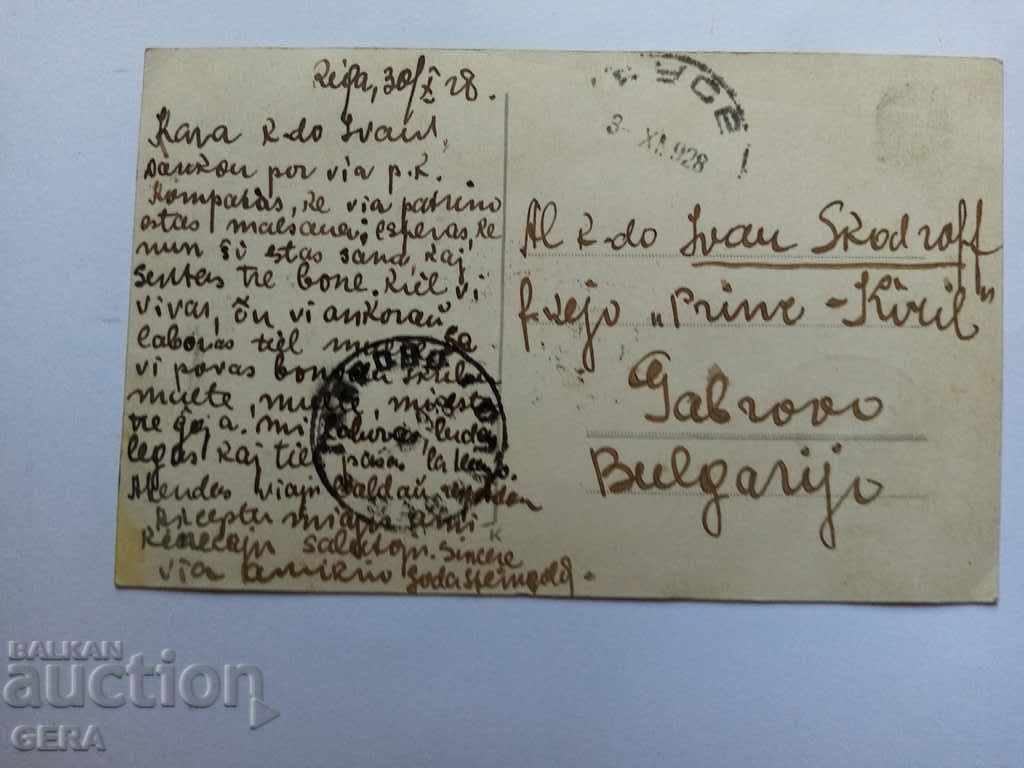 Riga, 30/X 28.
Kara K-do Ivan,
Dankon por via p.k.
Kompatas, ke via patrino
estas malsana; esperas, ke
nun ŝi estas sana, kaj
sentas tre bone. Kiel vi
vivas, ĉu vi ankoraŭ
laboras tiel
vi povas
multe, multe,
mi laboras,
legas kaj tiel pasas la
Atendas vian baldaŭ
Akceptu miajn
salutojn. Sincere
via amikino
РУСЕ
3-XI.928
Al K-do Ivan Skodroff
f-kejo „Princ-Kiril"
Gabrovo
Bulgarijo
BALKAN
auction
GERA